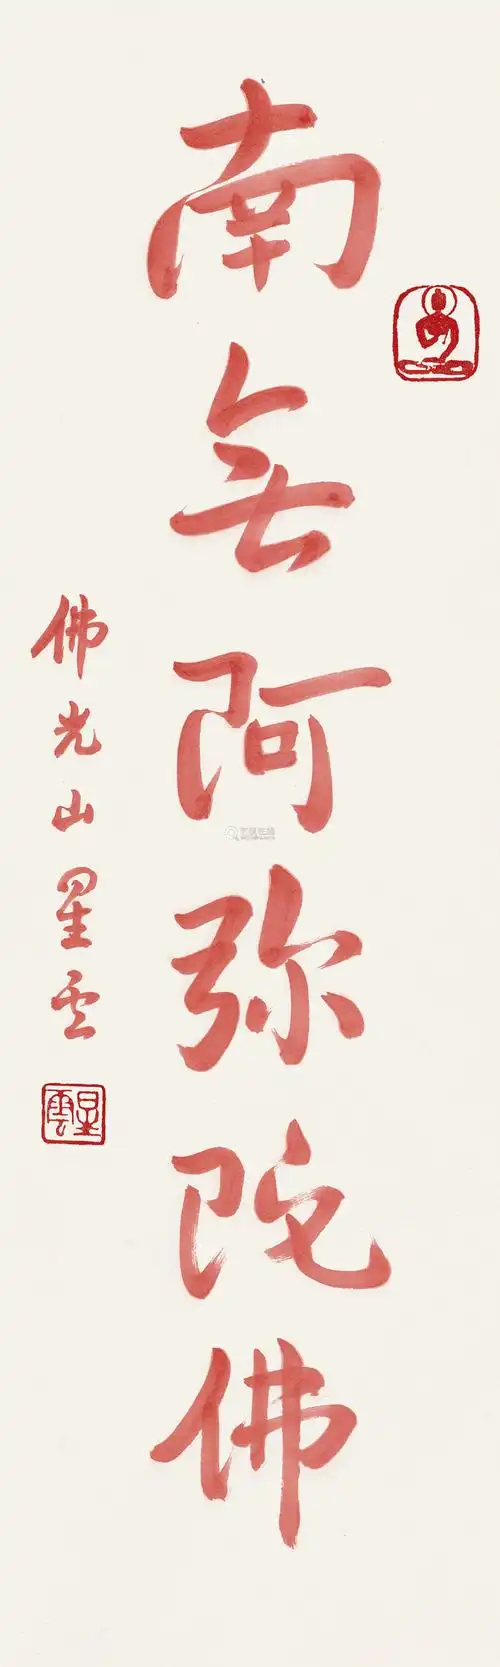 南无阿弥陀佛
佛光山星云
星雲